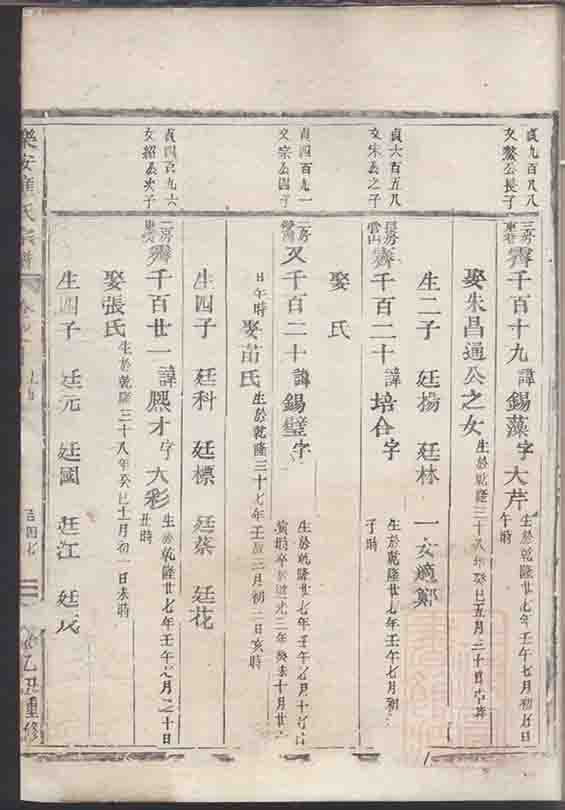 貞九百八八
父鰲公長子
三房
霽千百十九諱錫藻字大芹
生於乾隆廿七年壬午七月初七日
午時
娶朱昌通公之女
生於乾隆三十八年癸巳五月三十日
生二子 廷揚 廷林 一女適鄭
貞六百五八
父宋公之子
長房
霽千百二十諱培合字
生於乾隆廿七年壬午八月初
子時
娶 氏
貞四百九一
父宗公四子
房
又千百二十諱錫璧字
生於乾隆廿七年壬午七月十
寅時卒於道光三年癸未十月廿
日午時
娶苗氏
生於乾隆三十七年壬辰二月初二日亥時
生四子 廷科 廷標 廷蔡 廷花
貞四百九六
父紹公次子
二房
霽千百廿一諱熙才字大彩
生於乾隆廿七年壬午七月二十日
丑時
娶張氏
生於乾隆三十八年癸巳十月初一日未時
生四子 廷元 廷國 廷江 廷成
樂安 氏宗譜
乙丑重修